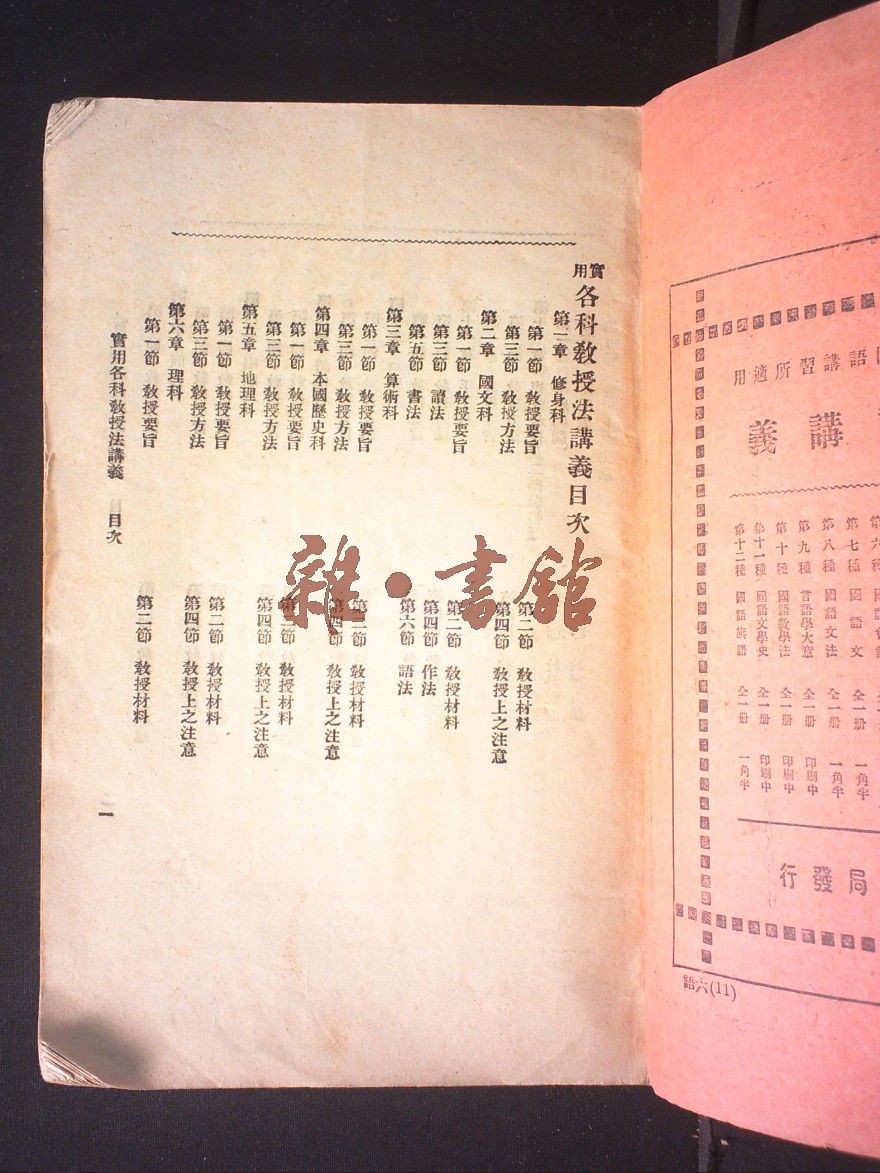 實用各科敎授法講義目次
第一章　修身科
第一節　敎授要旨　第二節　敎授材料
第三節　敎授方法　第四節　敎授上之注意
第二章　國文科
第一節　敎授要旨　第二節　敎授材料
第三節　讀法　第四節　作法
第五節　書法　第六節　語法
第三章　算術科
第一節　敎授要旨　第二節　敎授材料
第三節　敎授方法　第四節　敎授上之注意
第四章　本國歷史科
第一節　敎授要旨　第二節　敎授材料
第三節　敎授方法　第四節　敎授上之注意
第五章　地理科
第一節　敎授要旨　第二節　敎授材料
第三節　敎授方法　第四節　敎授上之注意
第六章　理科
第一節　敎授要旨　第二節　敎授材料
實用各科敎授法講義　目次　一
雜·書館
語講習所適用
講義
第七種　國語文　全一册　一角半
第八種　國語文法　全一册　一角半
第九種　言語學大意　全一册　印刷中
第十種　國語敎學法　全一册　印刷中
第十一種　國語文學史　全一册　印刷中
第十二種　國語　全一册　一角半
局發行
語六(11)